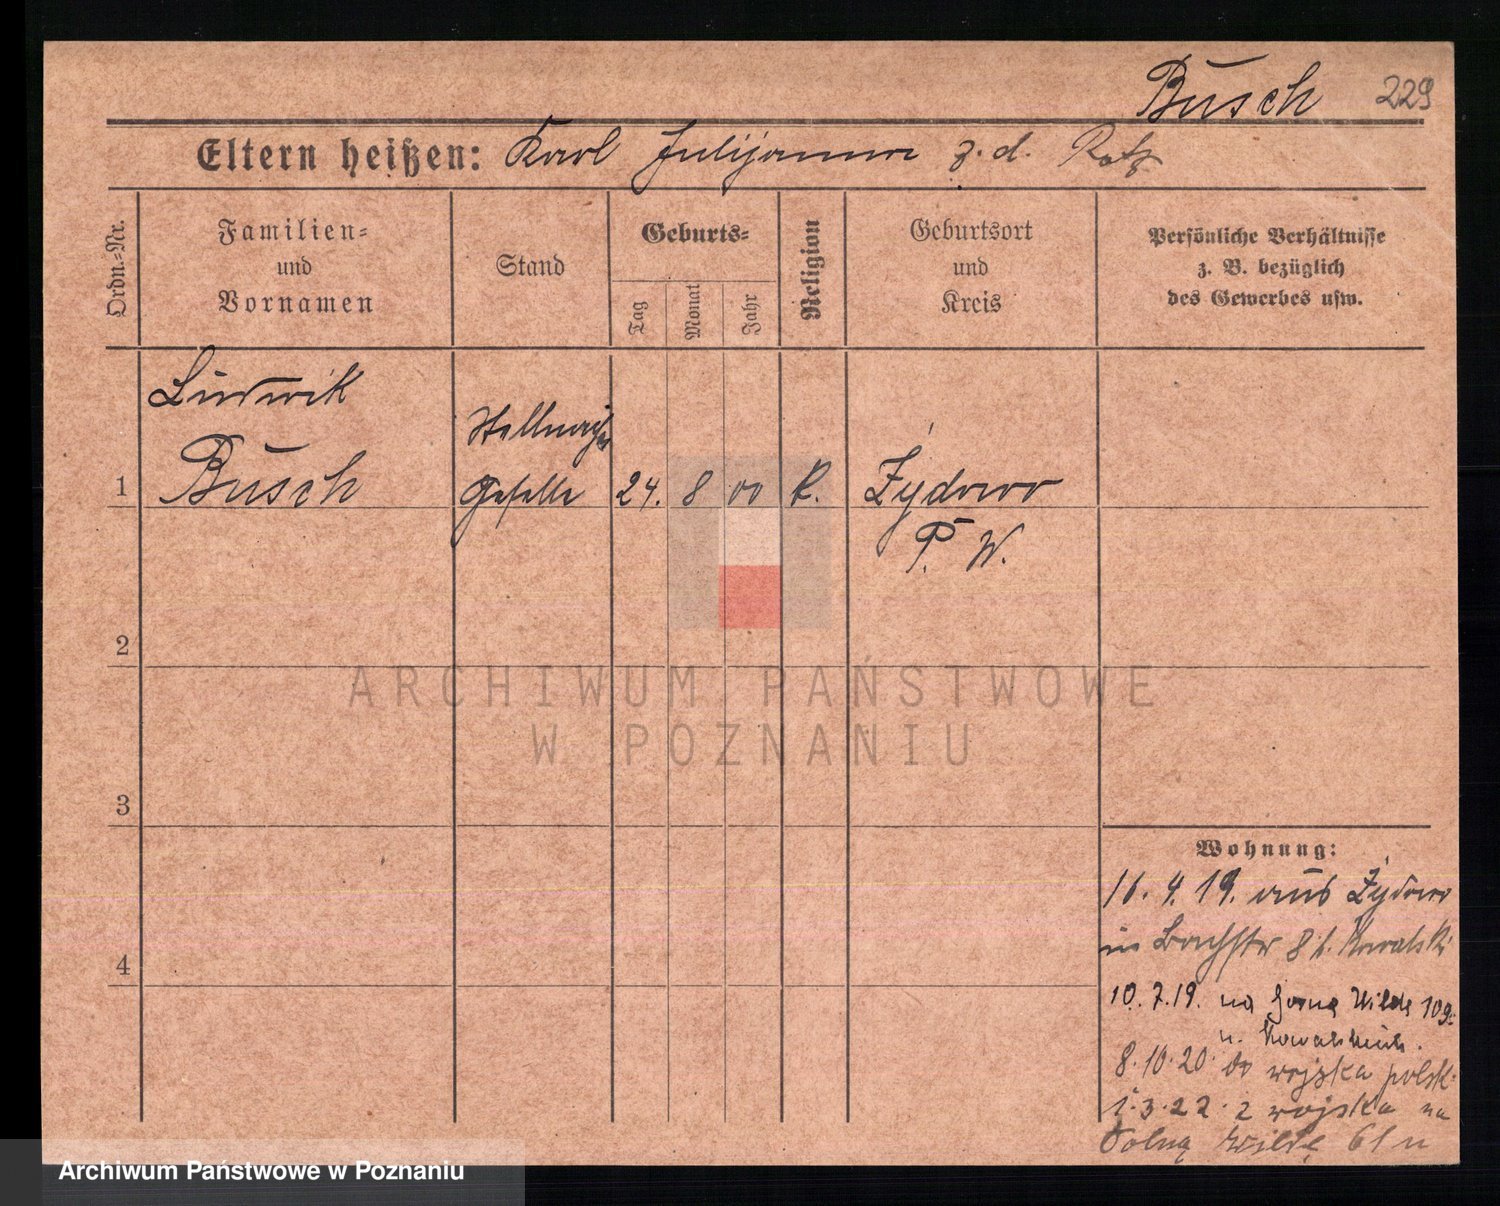 Busch 229
Eltern heißen: Karl Julijanna z. d. Ratz
Ordn.-Nr.
Familien-
und
Vornamen
Stand
Geburts-
Tag
Monat
Jahr
Religion
Geburtsort
und
Kreis
Persönliche Verhältnisse
z. B. bezüglich
des Gewerbes usw.
Ludwik
Stellmacher
1 Busch Geselle 24. 8 00 K. Żydowo
P. W.
2
3
4
Wohnung:
16. 4. 19. aus Żydowo
in Bachstr 8 b. Kowalski
10. 7. 19. na Gorna Wilda 109
u. Kowalskich.
8. 10. 20. do wojska polsk.
1. 3. 22. z wojska na
Dolną Wildę 61 u
ARCHIWUM PAŃSTWOWE
W POZNANIU
Archiwum Państwowe w Poznaniu